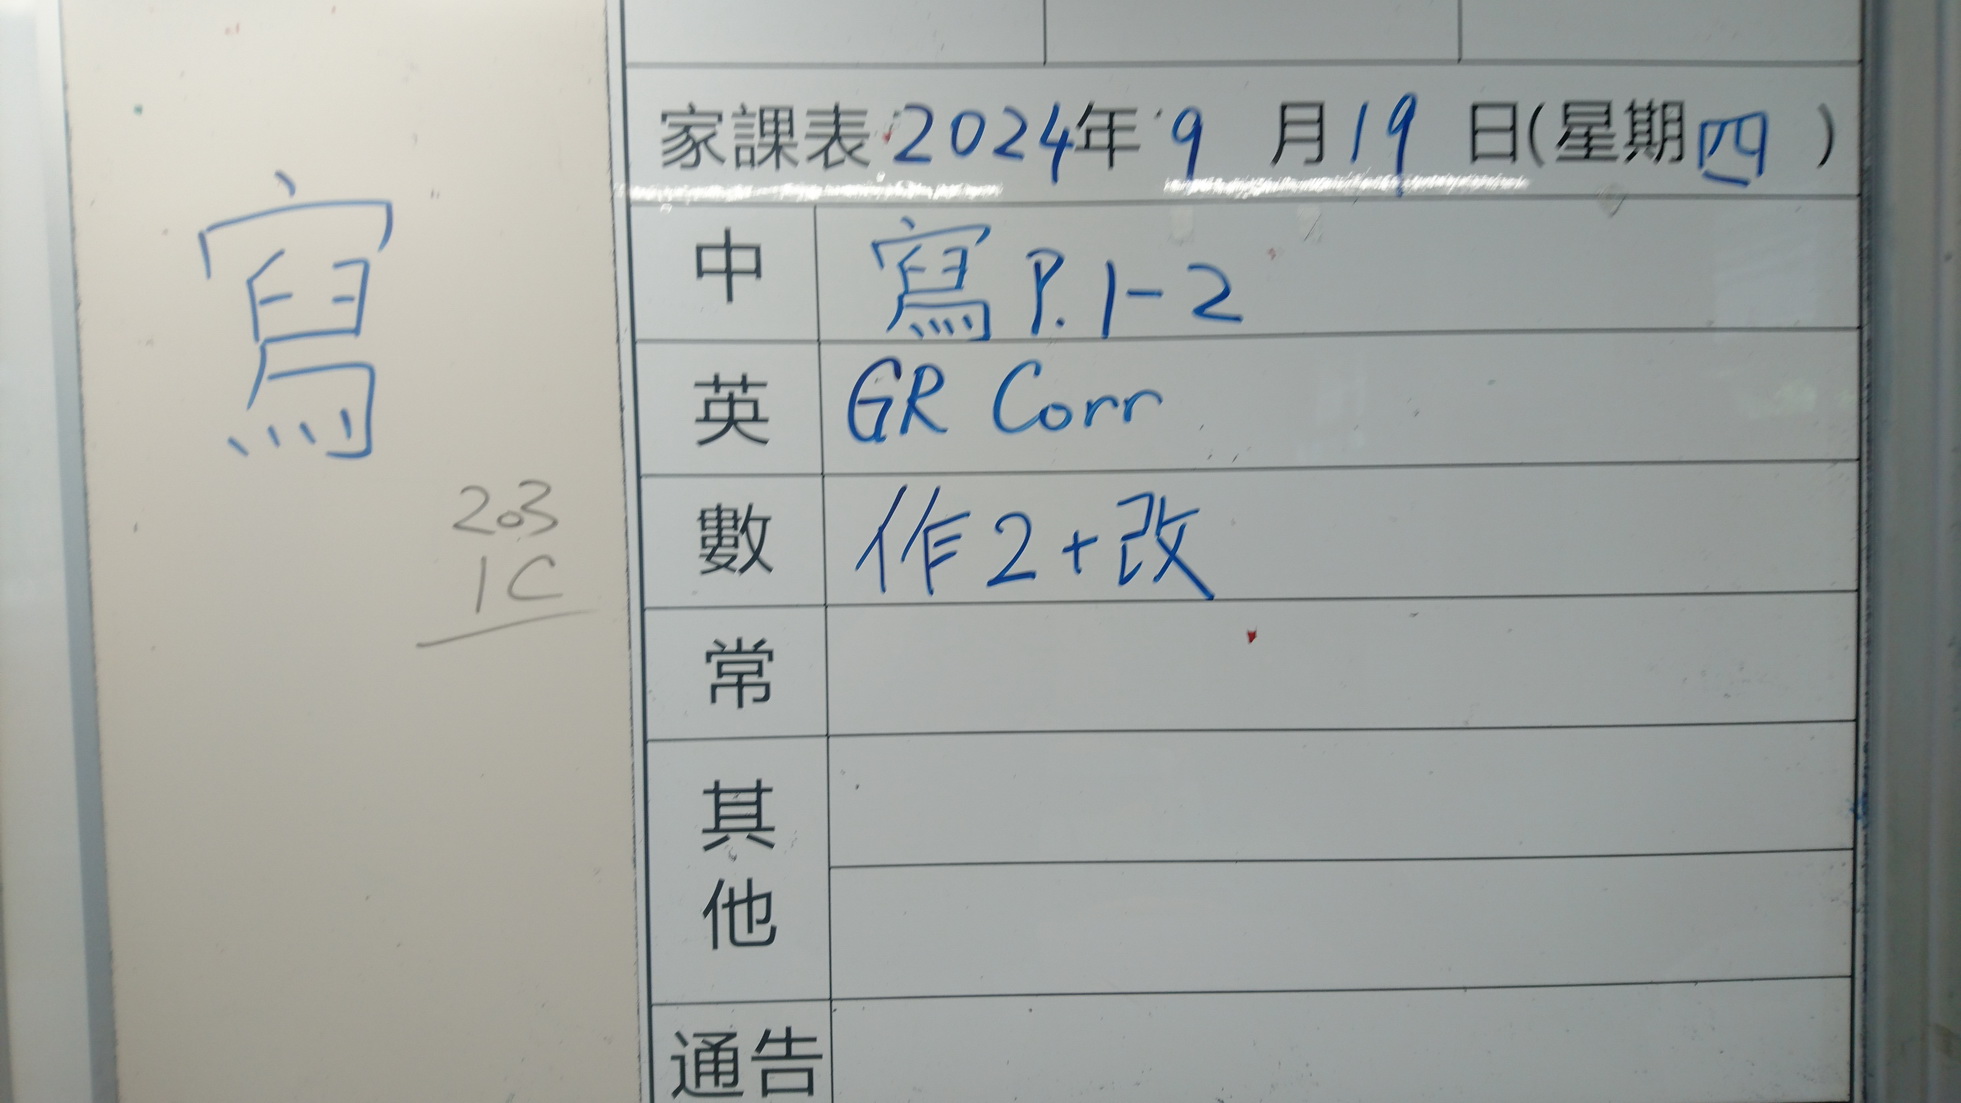 寫
203
1C
家課表 2024年 9 月 19 日(星期四)
中 寫 P.1-2
英 GR Corr
數 作2+改
常
其他
通告